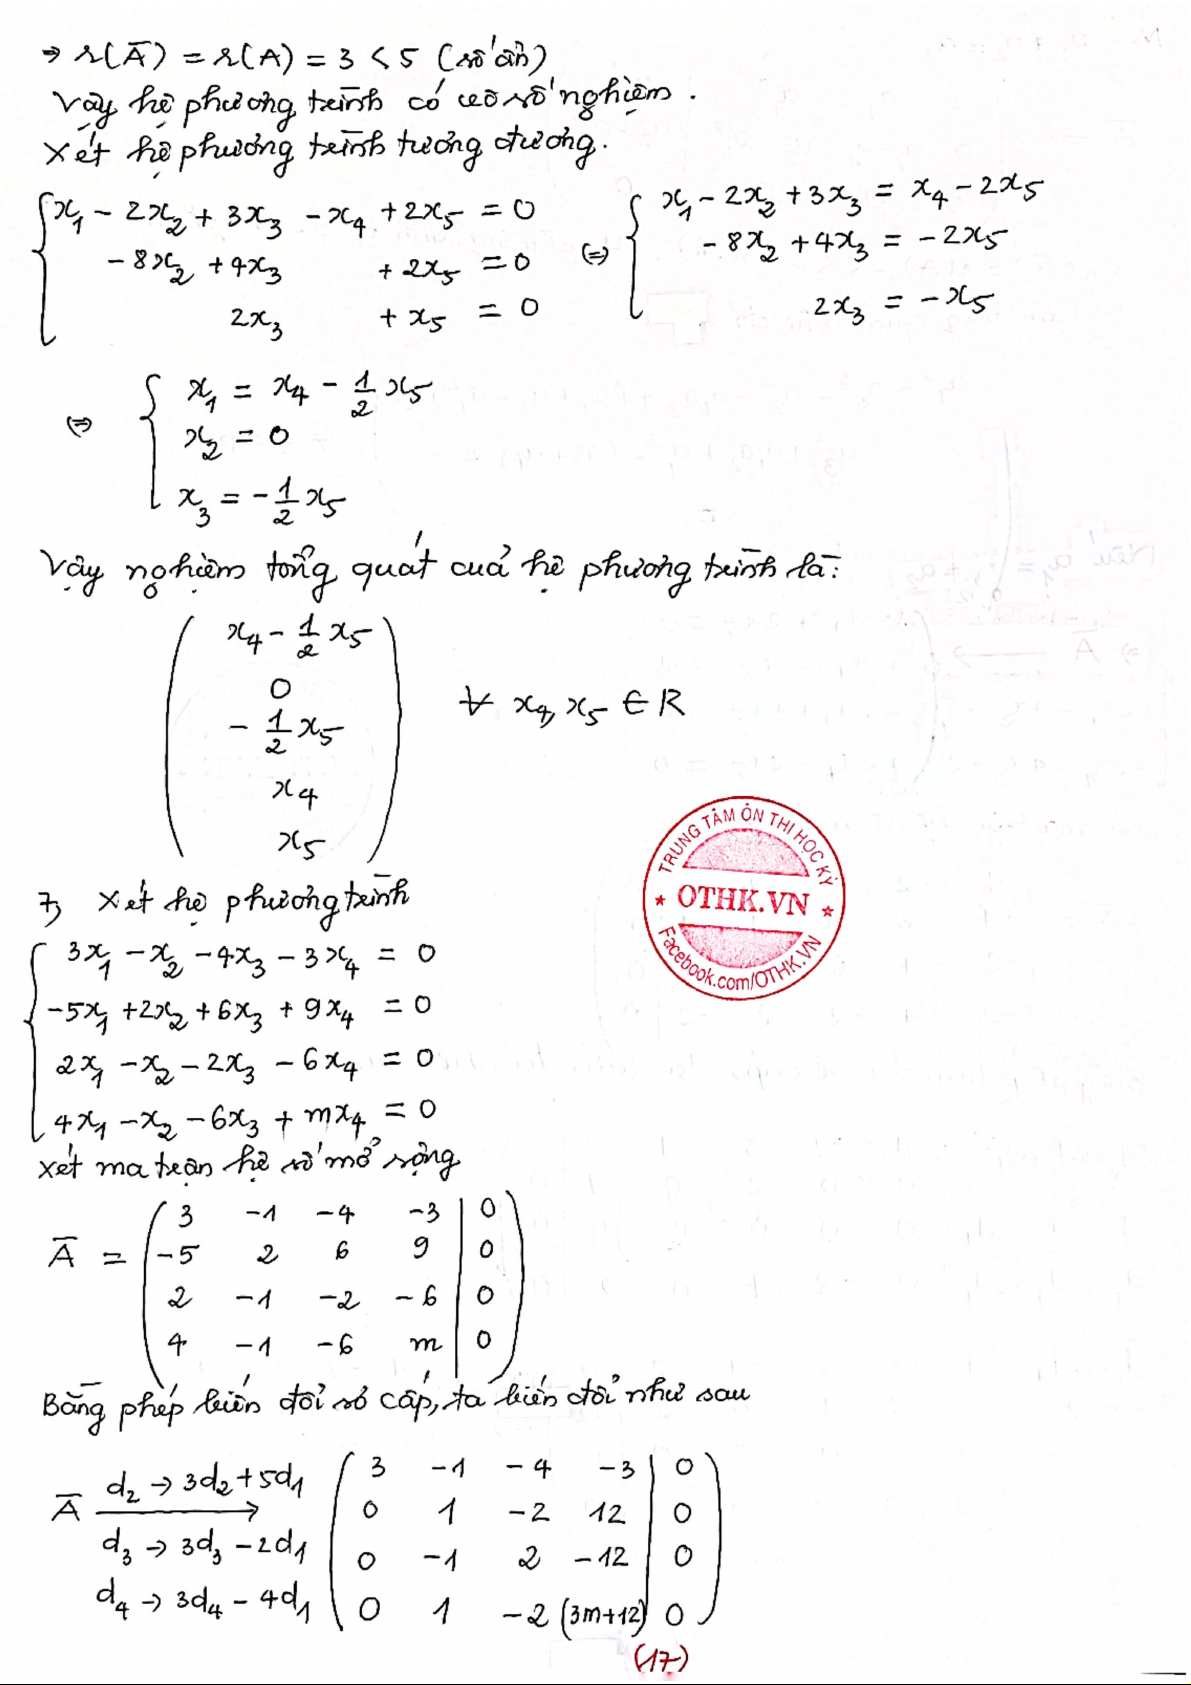 ⇒ r(Ā) = r(A) = 3 < 5 (số ẩn)
Vậy hệ phương trình có vô số nghiệm.
Xét hệ phương trình tương đương.
x₁ - 2x₂ + 3x₃ - x₄ + 2x₅ = 0 ⇔ x₁ - 2x₂ + 3x₃ = x₄ - 2x₅
-8x₂ + 4x₃ + 2x₅ = 0 -8x₂ + 4x₃ = -2x₅
2x₃ + x₅ = 0 2x₃ = -x₅
⇔ x₁ = x₄ - 1/2 x₅
x₂ = 0
x₃ = -1/2 x₅
Vậy nghiệm tổng quát của hệ phương trình là:
x₄ - 1/2 x₅
0
-1/2 x₅ ∀ x₄, x₅ ∈ R
x₄
x₅
TRUNG TÂM ÔN THI HỌC KỲ
★ OTHK.VN ★
Facebook.com/OTHK.VN
7) Xét hệ phương trình
3x₁ - x₂ - 4x₃ - 3x₄ = 0
-5x₁ + 2x₂ + 6x₃ + 9x₄ = 0
2x₁ - x₂ - 2x₃ - 6x₄ = 0
4x₁ - x₂ - 6x₃ + mx₄ = 0
Xét ma trận hệ số mở rộng
Ā = ( 3 -1 -4 -3 | 0
-5 2 6 9 | 0
2 -1 -2 -6 | 0
4 -1 -6 m | 0 )
Bằng phép biến đổi sơ cấp, ta biến đổi như sau
Ā d₂ → 3d₂ + 5d₁ ( 3 -1 -4 -3 | 0
0 1 -2 12 | 0
d₃ → 3d₃ - 2d₁ 0 -1 2 -12 | 0
d₄ → 3d₄ - 4d₁ 0 1 -2 (3m+12) | 0 )
(17)